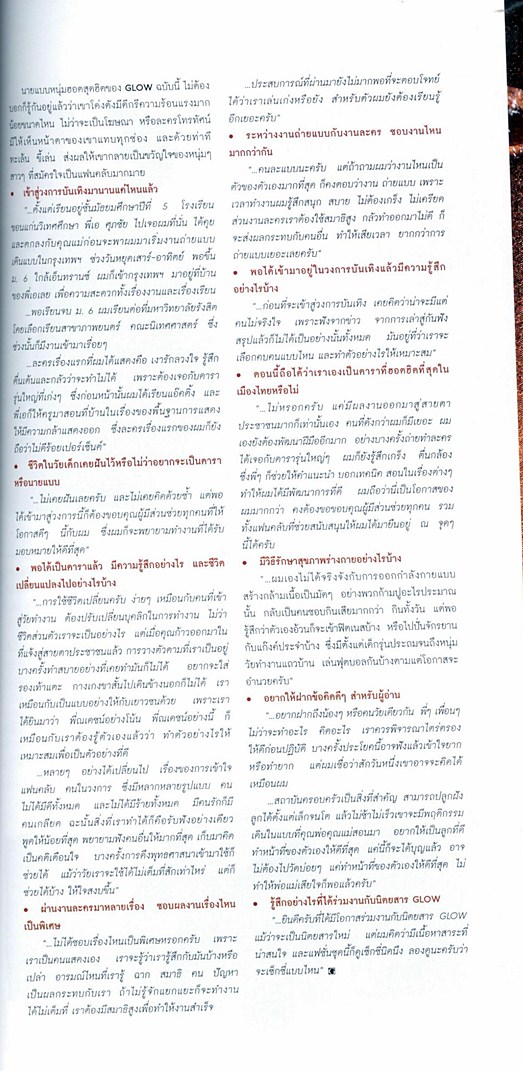 นายแบบหนุ่มฮอตสุดฮิตของ GLOW ฉบับนี้ ไม่ต้อง
บอกก็รู้กันอยู่แล้วว่าเขาโด่งดังมีดีกรีความร้อนแรงมาก
น้อยขนาดไหน ไม่ว่าจะเป็นโฆษณา หรือละครโทรทัศน์
มีให้เห็นหน้าคาของเขาแทบทุกช่อง และด้วยท่าที
ทะเล้น ขี้เล่น ส่งผลให้เขากลายเป็นขวัญใจของหนุ่มๆ
สาวๆ ที่สมัครใจเป็นแฟนคลับมากมาย
• เข้าสู่วงการบันเทิงมานานแค่ไหนแล้ว
"...ตั้งแต่เรียนอยู่ชั้นมัธยมศึกษาปีที่ 5 โรงเรียน
ขอนแก่นวิเทศศึกษา พี่เอ ศุภชัย ไปเจอผมที่นั่น ได้คุย
และตกลงกับคุณแม่ก่อนจะพาผมมาเริ่มงานถ่ายแบบ
เดินแบบในกรุงเทพฯ ช่วงวันหยุดเสาร์-อาทิตย์ พอขึ้น
ม. 6 ใกล้เอ็นทรานซ์ ผมก็เข้ากรุงเทพฯ มาอยู่ที่บ้าน
ของพี่เอเลย เพื่อความสะดวกทั้งเรื่องงานและเรื่องเรียน
...พอเรียนจบ ม. 6 ผมเรียนต่อที่มหาวิทยาลัยรังสิต
โดยเลือกเรียนสาขาภาพยนตร์ คณะนิเทศศาสตร์ ซึ่ง
ช่วงนั้นก็มีงานเข้ามาเรื่อยๆ
...ละครเรื่องแรกที่ผมได้แสดงคือ เงารักลวงใจ รู้สึก
ตื่นเต้นและกลัวว่าจะทำไม่ได้ เพราะต้องเจอกับดารา
รุ่นใหญ่ที่เก่งๆ ซึ่งก่อนหน้านั้นผมได้เรียนแอ็คติ้ง และ
พี่เอก็ให้ครูมาสอนที่บ้านในเรื่องของพื้นฐานการแสดง
ให้มีความกล้าแสดงออก ซึ่งละครเรื่องแรกของผมก็ยัง
ถือว่าไม่ดีร้อยเปอร์เซ็นต์"
• ชีวิตในวัยเด็กเคยฝันไว้หรือไม่ว่าอยากจะเป็นดารา
หรือนายแบบ
"...ไม่เคยฝันเลยครับ และไม่เคยคิดด้วยซ้ำ แต่พอ
ได้เข้ามาสู่วงการนี้ก็ต้องขอบคุณผู้มีส่วนช่วยทุกคนที่ให้
โอกาสดีๆ นี้กับผม ซึ่งผมก็จะพยายามทำงานที่ได้รับ
มอบหมายให้ดีที่สุด"
• พอได้เป็นดาราแล้ว มีความรู้สึกอย่างไร และชีวิต
เปลี่ยนแปลงไปอย่างไรบ้าง
"...การใช้ชีวิตเปลี่ยนครับ ง่ายๆ เหมือนกับคนที่เข้า
สู่วัยทำงาน ต้องปรับเปลี่ยนบุคลิกในการทำงาน ไม่ว่า
ชีวิตส่วนตัวเราจะเป็นอย่างไร แต่เมื่อคุณก้าวออกมาใน
ที่แจ้งสู่สายตาประชาชนแล้ว การวางตัวตามที่เราเป็นอยู่
บางครั้งทำสบายอย่างที่เคยทำมันก็ไม่ได้ อยากจะใส่
รองเท้าแตะ กางเกงขาสั้นไปเดินข้างนอกก็ไม่ได้ เรา
เหมือนกับเป็นแบบอย่างให้กับเยาวชนด้วย เพราะเรา
ได้ยินมาว่า พี่ณเดชน์อย่างโน้น พี่ณเดชน์อย่างนี้ ก็
เหมือนกับเราต้องรู้ตัวเองแล้วว่า ทำตัวอย่างไรให้
เหมาะสมเพื่อเป็นตัวอย่างที่ดี
...หลายๆ อย่างได้เปลี่ยนไป เรื่องของการเข้าใจ
แฟนคลับ คนในวงการ ซึ่งมีหลากหลายรูปแบบ คน
ไม่ได้มีดีทั้งหมด และไม่ได้มีร้ายทั้งหมด มีคนรักก็มี
คนเกลียด ฉะนั้นสิ่งที่เราทำได้ก็คือรับฟังอย่างเดียว
พูดให้น้อยที่สุด พยายามฟังคนอื่นให้มากที่สุด เก็บมาคิด
เป็นคติเตือนใจ บางครั้งการดึงพุทธศาสนาเข้ามาใช้ก็
ช่วยได้ แม้ว่าวัยเราจะใช้ได้ไม่เต็มที่สักเท่าไหร่ แต่ก็
ช่วยได้บ้าง ให้ใจสงบขึ้น"
• ผ่านงานละครมาหลายเรื่อง ชอบผลงานเรื่องไหน
เป็นพิเศษ
"...ไม่ได้ชอบเรื่องไหนเป็นพิเศษหรอกครับ เพราะ
เราเป็นคนแสดงเอง เราจะรู้ว่าเรารู้สึกกับมันบ้างหรือ
เปล่า อารมณ์ไหนที่เรารู้ ฉาก สมาธิ คน ปัญหา
เป็นผลกระทบกับเรา ถ้าไม่รู้จักแยกแยะก็จะทำงาน
ได้ไม่เต็มที่ เราต้องมีสมาธิสูงเพื่อทำให้งานสำเร็จ
...ประสบการณ์ที่ผ่านมายังไม่มากพอที่จะตอบโจทย์
ได้ว่าเราเล่นเก่งหรือยัง สำหรับตัวผมยังต้องเรียนรู้
อีกเยอะครับ"
• ระหว่างงานถ่ายแบบกับงานละคร ชอบงานไหน
มากกว่ากัน
"...คนละแบบนะครับ แต่ถ้าถามผมว่างานไหนเป็น
ตัวของตัวเองมากที่สุด ก็คงตอบว่างาน ถ่ายแบบ เพราะ
เวลาทำงานผมรู้สึกสนุก สบาย ไม่ต้องเกร็ง ไม่เครียด
ส่วนงานละครเราต้องใช้สมาธิสูง กลัวทำออกมาไม่ดี ก็
จะส่งผลกระทบกับคนอื่น ทำให้เสียเวลา ยากกว่าการ
ถ่ายแบบเยอะเลยครับ"
• พอได้เข้ามาอยู่ในวงการบันเทิงแล้วมีความรู้สึก
อย่างไรบ้าง
"...ก่อนที่จะเข้าสู่วงการบันเทิง เคยคิดว่าน่าจะมีแต่
คนไม่จริงใจ เพราะฟังจากข่าว จากการเล่าสู่กันฟัง
สรุปแล้วก็ไม่ได้เป็นอย่างนั้นทั้งหมด มันอยู่ที่ว่าเราจะ
เลือกคบคนแบบไหน และทำตัวอย่างไรให้เหมาะสม"
• ตอนนี้ถือได้ว่าเราเองเป็นดาราที่ฮอตฮิตที่สุดใน
เมืองไทยหรือไม่
"...ไม่หรอกครับ แค่มีผลงานออกมาสู่สายตา
ประชาชนมากก็เท่านั้นเอง คนที่ดังกว่าผมก็มีเยอะ ผม
เองยังต้องพัฒนาฝีมืออีกมาก อย่างบางครั้งถ่ายทำละคร
ได้เจอกับดารารุ่นใหญ่ๆ ผมก็ยังรู้สึกเกร็ง ตื่นกล้อง
ซึ่งพี่ๆ ก็ช่วยให้คำแนะนำ บอกเทคนิค สอนในเรื่องต่างๆ
ทำให้ผมได้มีพัฒนาการที่ดี ผมถือว่านี่เป็นโอกาสของ
ผมมากกว่า คงต้องขอขอบคุณผู้มีส่วนช่วยทุกคน รวม
ทั้งแฟนคลับที่ช่วยสนับสนุนให้ผมได้มายืนอยู่ ณ จุดๆ
นี้ได้ครับ
• มีวิธีรักษาสุขภาพร่างกายอย่างไรบ้าง
"...ผมเองไม่ได้จริงจังกับการออกกำลังกายแบบ
สร้างกล้ามเนื้อเป็นมัดๆ อย่างพวกก้ามปูอะไรประมาณ
นั้น กลับเป็นคนชอบกินเสียมากกว่า กินทั้งวัน แต่พอ
รู้สึกว่าตัวเองอ้วนก็จะเข้าฟิตเนสบ้าง หรือไปปั่นจักรยาน
กับแก๊งค์ประจำบ้าง ซึ่งมีตั้งแต่เด็กรุ่นประถมจนถึงหนุ่ม
วัยทำงานแถวบ้าน เล่นฟุตบอลกันบ้างตามแต่โอกาสจะ
อำนวยครับ"
• อยากให้ฝากข้อคิดดีๆ สำหรับผู้อ่าน
"...อยากฝากถึงน้องๆ หรือคนวัยเดียวกัน พี่ๆ เพื่อนๆ
ไม่ว่าจะทำอะไร คิดอะไร เราควรพิจารณาไตร่ตรอง
ให้ดีก่อนปฏิบัติ บางครั้งประโยคนี้อาจฟังแล้วเข้าใจยาก
หรือทำยาก แต่ผมเชื่อว่าสักวันหนึ่งเขาอาจจะคิดได้
เหมือนผม
...สถาบันครอบครัวเป็นสิ่งที่สำคัญ สามารถปลูกฝัง
ลูกได้ตั้งแต่เล็กจนโต แล้วไม่ช้าไม่เร็วเขาจะมีพฤติกรรม
เดินในแบบที่คุณพ่อคุณแม่สอนมา อยากให้เป็นลูกที่ดี
ทำหน้าที่ของตัวเองให้ดีที่สุด แค่นี้ก็จะได้บุญแล้ว อาจ
ไม่ต้องไปวัดบ่อยๆ แค่ทำหน้าที่ของตัวเองให้ดีที่สุด ไม่
ทำให้พ่อแม่เสียใจก็พอแล้วครับ"
• รู้สึกอย่างไรที่ได้ร่วมงานกับนิตยสาร GLOW
"...ยินดีครับที่ได้มีโอกาสร่วมงานกับนิตยสาร GLOW
แม้ว่าจะเป็นนิตยสารใหม่ แต่ผมคิดว่ามีเนื้อหาสาระที่
น่าสนใจ และแฟชั่นชุดนี้ก็ดูเซ็กซี่นิดนึง ลองดูนะครับว่า
จะเซ็กซี่แบบไหน"